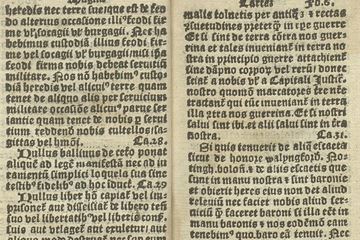 Magna
heredis nec terre sueque est de feo
do alterius occasione illiꝰ feodi fir
me vl socagii vel burgagii. Nec ha
bebimus custodiā illius feodi firme
me vel socagii vel burgagii nisi ip̄a
feodi firma nobis debeat seruitiū
militare. Nos nō habebimꝰ custo
diā heredis vel alicuiꝰ terre quam
tenet de aliquo alio per seruitium
militare occasiōe alicuiꝰ parue ser
iantie quam tenet de nobis ꝑ serui
tium reddendi nobis cultellos sa-
gittas vel hmōi. Ca.28.
Nullus balliuus de cetero ponat
aliquē ad legē manifestā nec ad iu
ramentū simplici loquela sua sine
testibꝰ fidelibꝰ ad hoc induct. Ca.29
Nullus liber hō capiat vel im-
prisonet aut disseisiet de libero tene
sūo vel libertatibꝰ vel liberis cons.
suis aut vtlaget aut exuletur aut
aliquo modo destruat nec sup eum
Cartas Fo.6.
malis tolnetis per antiqꝫ & rectas
ꝯsuetudines preterqꝫ in tp̄e guerre
Et si sint de terra cōtra nos guer-
rina et tales inueniant in terra no
stra in principio guerre attachient
sine dāpno corpor vel rerū donec
sciat a nobis vl a Capitali Justic.
nostro quomō marcatores tre nr̄e
tractant qui tūc inueniant in terra
illa ꝯtra nos guerrina. Et si nostri
salui sint ibi et alii salui sint in trā
nostra. Ca.31.
Si quis tenuerit de aliq̄ escaeta
sicut de honore walyngford. No-
tingh. bolon. & de aliis escaetis que
sunt in manu nostra & sint baronie
et obierit heres eius non det aliud
releuiū nec faciet nobis aliud ser-
uiciū qꝫ faceret baroni si illa eēt in
manu baronis & nos eodē modo eam
tenebimꝰ quo baro eā tenuit. Nec